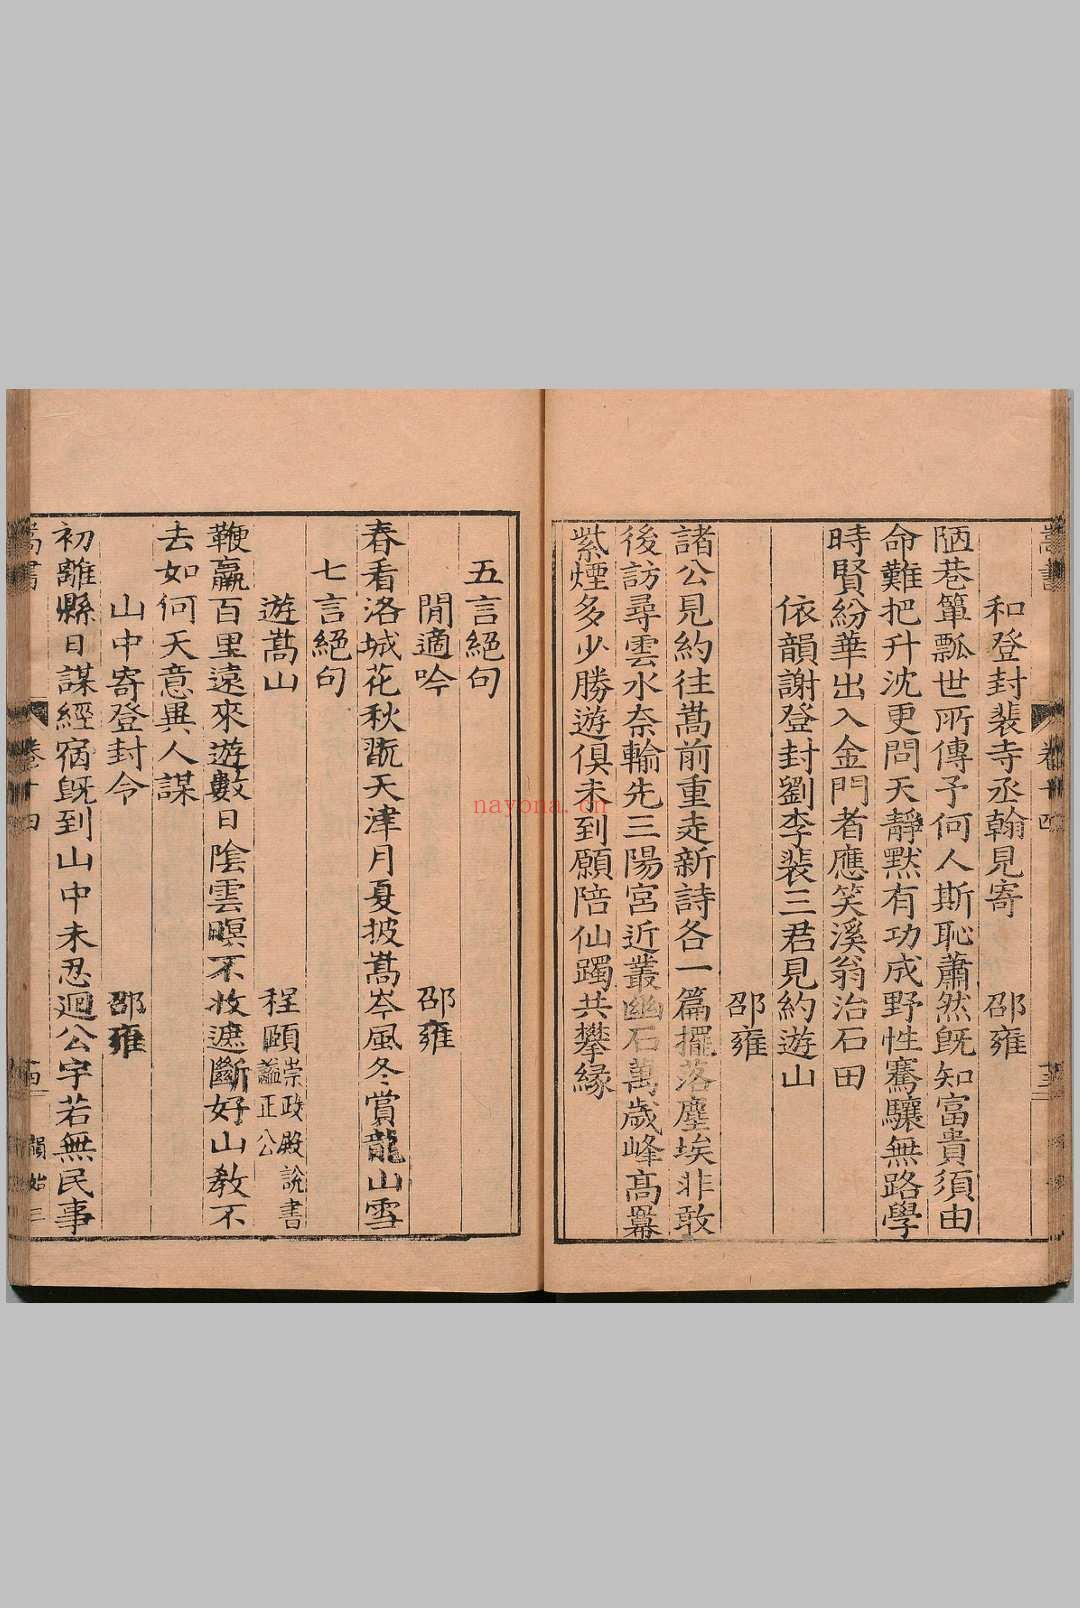 和登封裴寺丞翰見寄 邵雍
陋巷簞瓢世所傳予何人斯恥蕭然旣知富貴須由
命難把升沈更問天靜黙有功成野性騫驤無路學
時賢紛華出入金門者應笑溪翁治石田
依韻謝登封劉李裴三君見約遊山
邵雍
諸公見約往嵩前重走新詩各一篇擺落塵埃非敢
後訪尋雲水奈輸先三陽宮近叢幽石萬歲峰高羃
紫煙多少勝遊俱未到願陪仙躅共攀縁
五言絕句
閒適吟 邵雍
春看洛城花秋翫天津月夏披嵩岑風冬賞龍山雪
七言絕句
遊嵩山 程頤崇政殿說書謚正公
鞭羸百里遠來遊數日陰雲暝不收遮斷好山教不
去如何天意異人謀
山中寄登封令 邵雍
初離縣日謀經宿旣到山中未忍迴公宇若無民事
嵩書 卷十四 十四 韻始三
nayona.cn